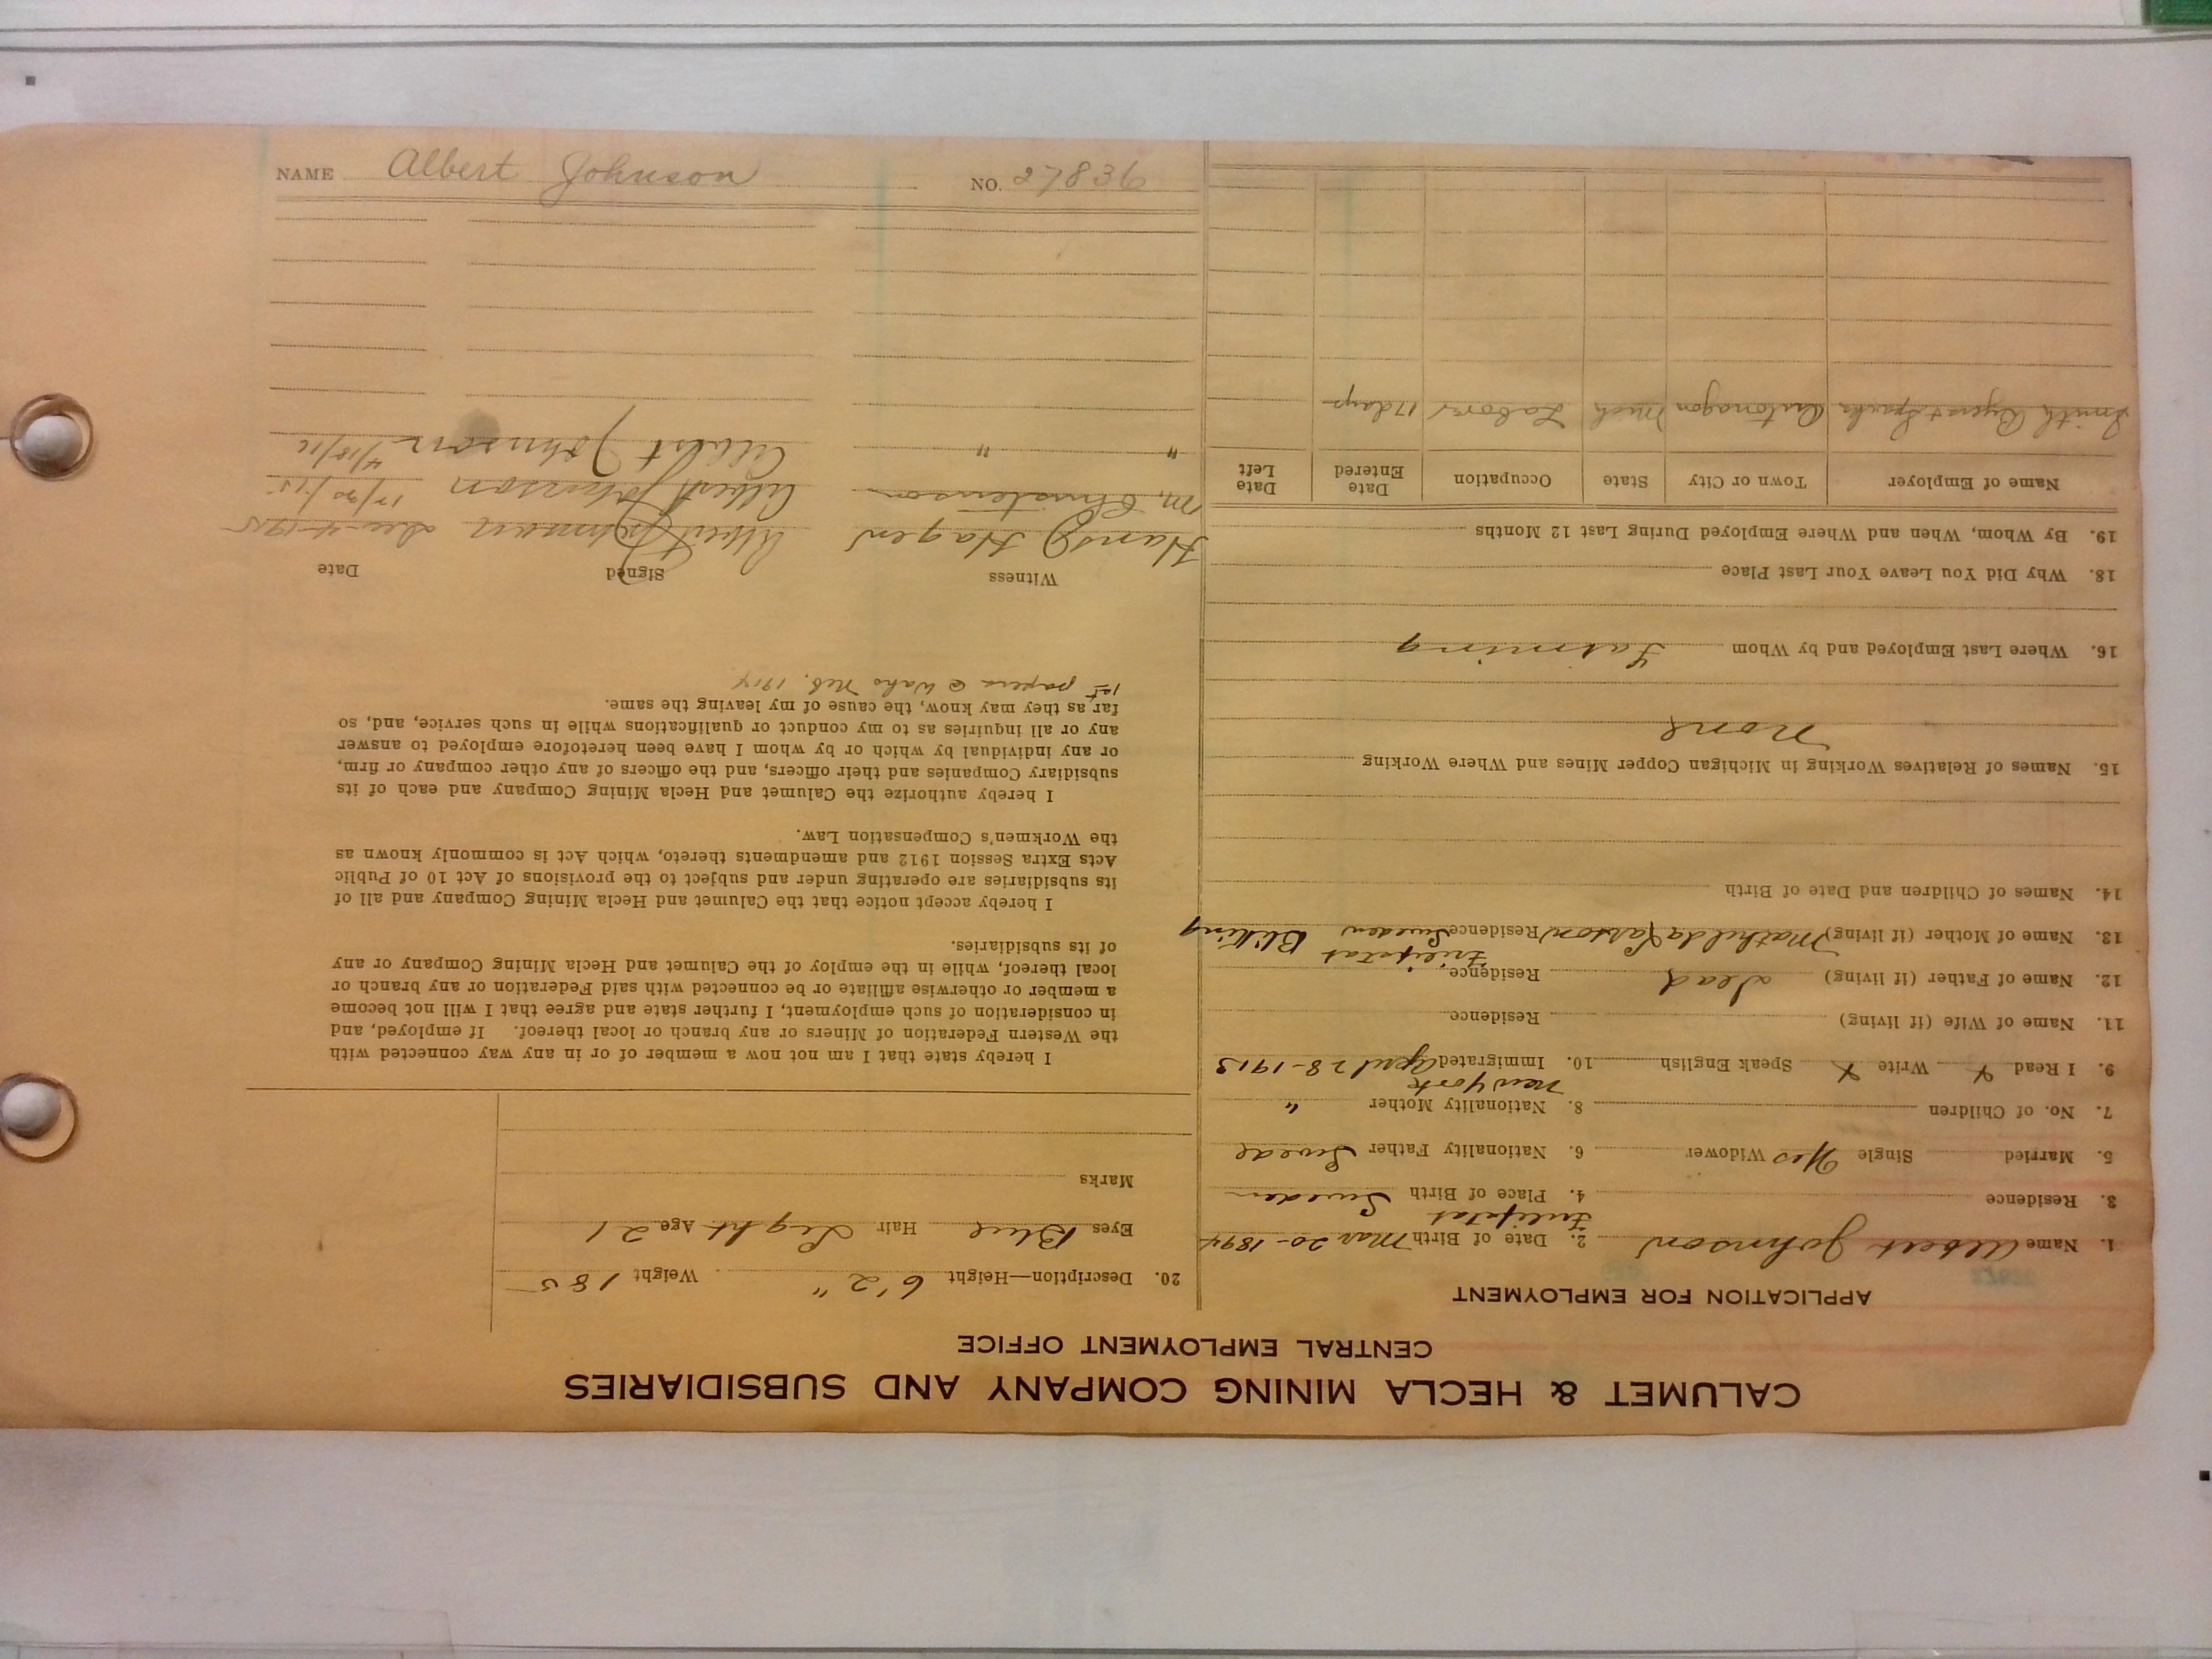 CALUMET & HECLA MINING COMPANY AND SUBSIDIARIES
CENTRAL EMPLOYMENT OFFICE
APPLICATION FOR EMPLOYMENT
1. Name Albert Johnson 2. Date of Birth Mar 20-1894
3. Residence 4. Place of Birth Sweden
5. Married Single Yes Widower 6. Nationality Father Swede
7. No. of Children 8. Nationality Mother "
New York
9. I Read X Write X Speak English 10. Immigrated April 28-1913
11. Name of Wife (if living) Residence
12. Name of Father (if living) Dead Residence
13. Name of Mother (if living) Mathilda Larson Residence Sweden
14. Names of Children and Date of Birth
15. Names of Relatives Working in Michigan Copper Mines and Where Working
None
16. Where Last Employed and by Whom Farming
18. Why Did You Leave Your Last Place
19. By Whom, When and Where Employed During Last 12 Months
Name of Employer Town or City State Occupation Date Entered Date Left
Smith Mich Labor 17 days
20. Description—Height 6'2" Weight 185
Eyes Blue Hair Light Age 21
Marks
I hereby state that I am not now a member of or in any way connected with
the Western Federation of Miners or any branch or local thereof. If employed, and
in consideration of such employment, I further state and agree that I will not become
a member or otherwise affiliate or be connected with said Federation or any branch or
local thereof, while in the employ of the Calumet and Hecla Mining Company or any
of its subsidiaries.
I hereby accept notice that the Calumet and Hecla Mining Company and all of
its subsidiaries are operating under and subject to the provisions of Act 10 of Public
Acts Extra Session 1912 and amendments thereto, which Act is commonly known as
the Workmen's Compensation Law.
I hereby authorize the Calumet and Hecla Mining Company and each of its
subsidiary Companies and their officers, and the officers of any other company or firm,
or any individual by which or by whom I have been heretofore employed to answer
any or all inquiries as to my conduct or qualifications while in such service, and, so
far as they may know, the cause of my leaving the same.
1st papers @ Waho Neb. 1914
Witness Signed Date
Hans J Hagen Albert Johnson Dec 4-1915
M. Christenson Albert Johnson 12/30/15
" " Albert Johnson 4/18/16
NAME Albert Johnson NO. 27836